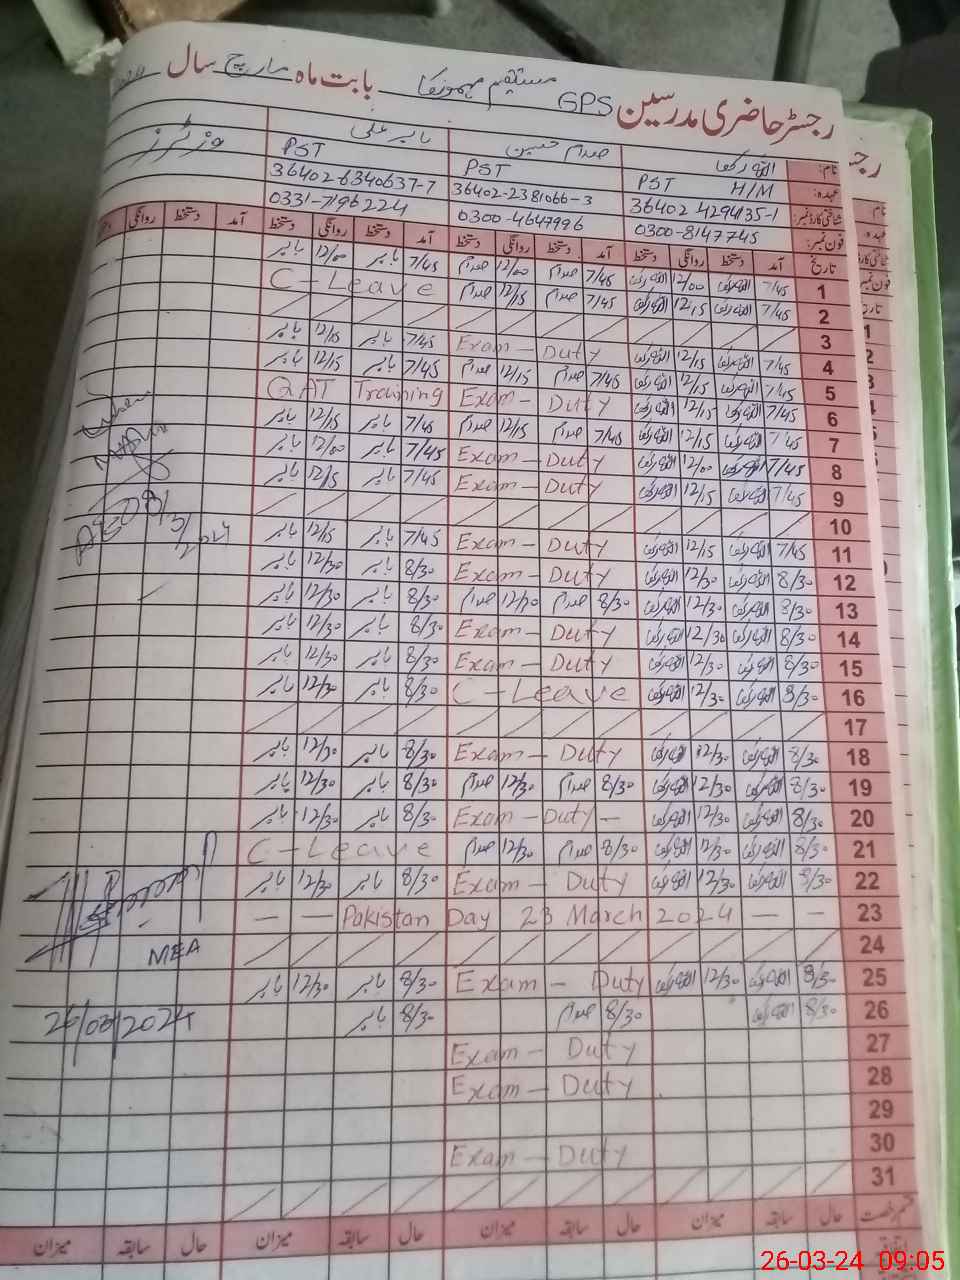 رجسٹر حاضری مدرسین GPS مستقیم مہمونکا بابت ماہ مارچ سال
نام: اللہ رکھا صدام حسین بابر علی وزٹرز
عہدہ: PST H/M PST PST
شناختی کارڈ نمبر: 36402-4294135-1 36402-2381066-3 36402-6340637-7
فون نمبر: 0300-8147745 0300-4647996 0331-7196224
تاریخ آمد دستخط روانگی دستخط آمد دستخط روانگی دستخط آمد دستخط روانگی دستخط آمد دستخط روانگی
1 7/45 اللہ رکھا 12/00 اللہ رکھا 7/45 صدام 12/00 صدام 7/45 بابر 12/00 بابر
2 7/45 اللہ رکھا 12/15 اللہ رکھا 7/45 صدام 12/15 صدام C-Leave
3
4 7/45 اللہ رکھا 12/15 اللہ رکھا Exam-Duty 7/45 بابر 12/15 بابر
5 7/45 اللہ رکھا 12/15 اللہ رکھا 7/45 صدام 12/15 صدام 7/45 بابر 12/15 بابر
6 7/45 اللہ رکھا 12/15 اللہ رکھا Exam-Duty QAT Training
7 7/45 اللہ رکھا 12/15 اللہ رکھا 7/45 صدام 12/15 صدام 7/45 بابر 12/15 بابر
8 7/45 اللہ رکھا 12/00 اللہ رکھا Exam-Duty 7/45 بابر 12/00 بابر
9 7/45 اللہ رکھا 12/15 اللہ رکھا Exam-Duty 7/45 بابر 12/15 بابر
10
11 7/45 اللہ رکھا 12/15 اللہ رکھا Exam-Duty 7/45 بابر 12/15 بابر
12 8/30 اللہ رکھا 12/30 اللہ رکھا Exam-Duty 8/30 بابر 12/30 بابر
13 8/30 اللہ رکھا 12/30 اللہ رکھا 8/30 صدام 12/30 صدام 8/30 بابر 12/30 بابر
14 8/30 اللہ رکھا 12/30 اللہ رکھا Exam-Duty 8/30 بابر 12/30 بابر
15 8/30 اللہ رکھا 12/30 اللہ رکھا Exam-Duty 8/30 بابر 12/30 بابر
16 8/30 اللہ رکھا 12/30 اللہ رکھا C-Leave 8/30 بابر 12/30 بابر
17
18 8/30 اللہ رکھا 12/30 اللہ رکھا Exam-Duty 8/30 بابر 12/30 بابر
19 8/30 اللہ رکھا 12/30 اللہ رکھا 8/30 صدام 12/30 صدام 8/30 بابر 12/30 بابر
20 8/30 اللہ رکھا 12/30 اللہ رکھا Exam-Duty- 8/30 بابر 12/30 بابر
21 8/30 اللہ رکھا 12/30 اللہ رکھا 8/30 صدام 12/30 صدام C-Leave
22 8/30 اللہ رکھا 12/30 اللہ رکھا Exam-Duty 8/30 بابر 12/30 بابر
23 — — Pakistan Day 23 March 2024 — —
24 MEA
25 8/30 اللہ رکھا 12/30 اللہ رکھا Exam-Duty 8/30 بابر 12/30 بابر
26 8/30 اللہ رکھا 8/30 صدام 8/30 بابر 26/03/2024
27 Exam-Duty
28 Exam-Duty
29
30 Exam-Duty
31
قسم رخصت حال سابقہ میزان حال سابقہ میزان حال سابقہ میزان حال سابقہ میزان
26-03-24 09:05